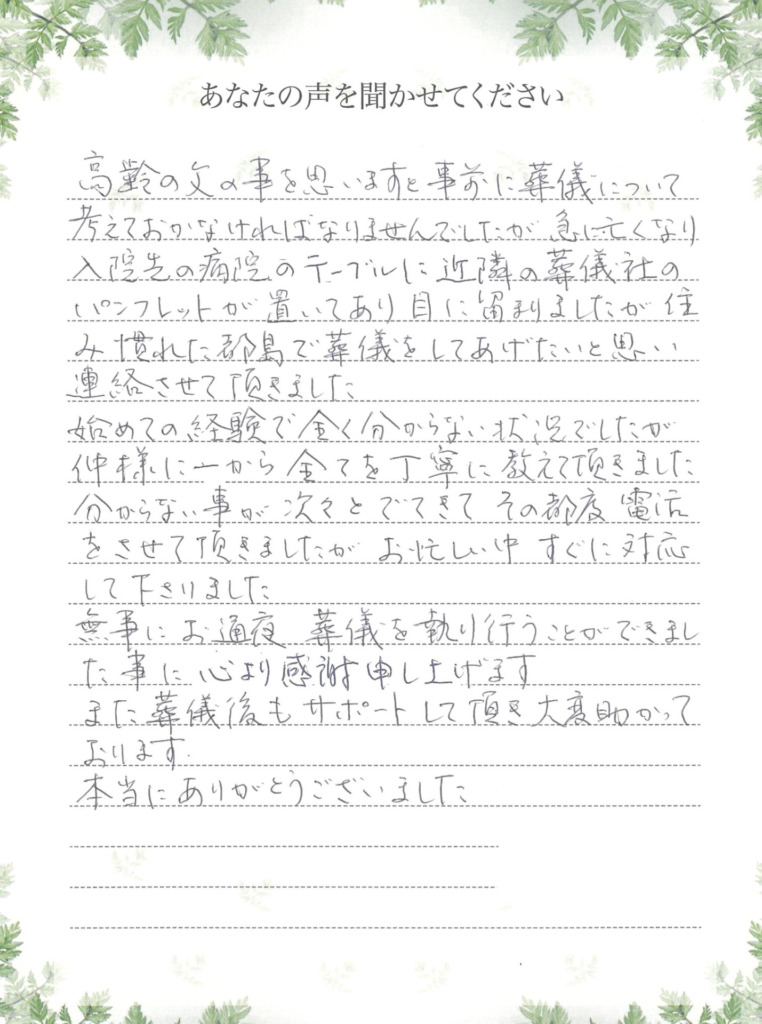 あなたの声を聞かせてください
高齢の父の事を思いますと事前に葬儀について
考えておかなければなりませんでしたが 急に亡くなり
入院先の病院のテーブルに近隣の葬儀社の
パンフレットが置いてあり目に留まりましたが住
み慣れた都島で葬儀をしてあげたいと思い
連絡させて頂きました
始めての経験で全く分からない状況でしたが
仲様に一から全てを丁寧に教えて頂きました
分からない事が次々とでてきて その都度 電話
をさせて頂きましたが お忙しい中 すぐに対応
して下さりました
無事にお通夜 葬儀を執り行うことができまし
た事に心より感謝申し上げます
また葬儀後もサポートして頂き大変助かって
おります.
本当にありがとうございました